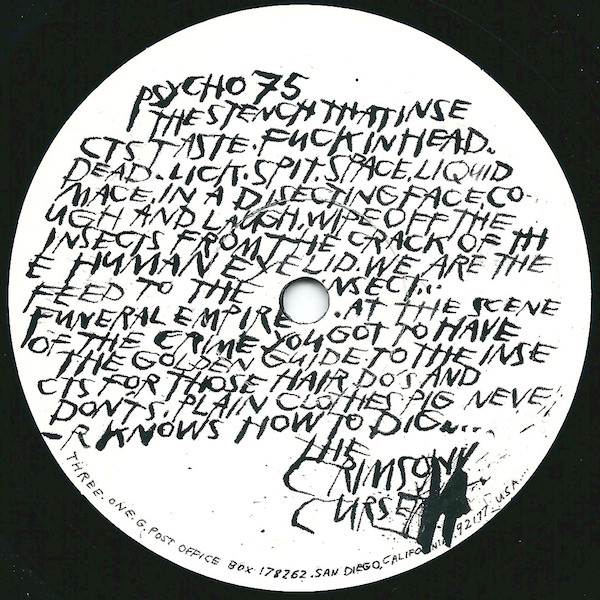 PSYCHO 75
THE STENCH THAT INSE
CTS TASTE. FUCKIN HEAD.
DEAD. LICK. SPIT. SPACE. LIQUID
MACE. IN A DISECTING FACE. CO
UGH AND LAUGH. WIPE OFF THE
INSECTS FROM THE CRACK OF TH
E HUMAN EYELID. WE ARE THE
FEED TO THE INSECT...
FUNERAL EMPIRE . AT THE SCENE
OF THE CRIME YOU GOT TO HAVE
THE GOLDEN GUIDE. TO THE INSE
CTS FOR THOSE HAIR DO'S AND
DONTS. PLAIN CLOTHES PIG NEVE
-R KNOWS HOW TO DIG....
THE
CRIMSON
CURSE
THREE. ONE. G. POST OFFICE BOX 178262. SAN DIEGO, CALIFORNIA. 92177. U.S.A....